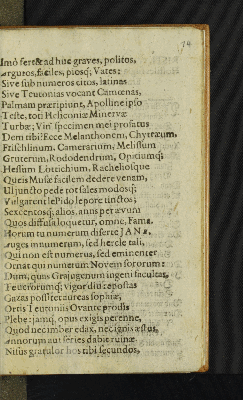 74
Imò fert & ad huc graves, politos,
Argutos, faciles, piosq; Vates:
Sive sub numeros citos, latinas
Sive Teutonias vocant Camœnas,
Palmam præripiunt, Apolline ipso
Teste, toti Heliconiæ Minervæ
Turbæ; Vin' specimen mei profatus
Dem tibi? Ecce Melanthonem, Chytræum,
Frischlinum, Camerarium, Melissum
Gruterum, Rododendrum, Opitiumq;
Hessum Lottichium, Racheliosque
Queis Musæ facilem dedere venam,
Ut juncto pede tot sales modosq;
Vulgarent lepido lepore tinctos;
Sexcentosq; alios, anus pet ævum
Quos diffusa loquetur, omne, Fama.
Horum tu numerum diserte JANE,
Auges in numerum, sed hercle tali,
Qui non est numerus, sed eminenter
Ornat qui numerum Novem sororum:
Dum, quas Grajugenûm ingenî facultas,
Teucrorumq; vigor diu repostas
Gazas possit et aureas sophiæ,
Ortis Teutoniis Ovante prodis
Plebe: jamq; opus exigis perenne,
Quod nec imber edax, nec ignis æstus,
Annorum aut series dabit ruinæ.
Nisus gratulor hos tibi secundos,